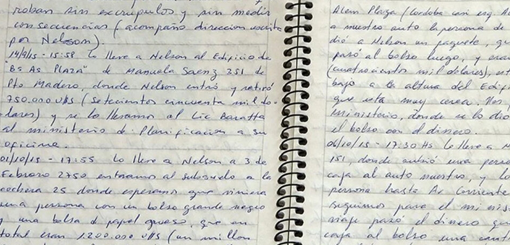 roban sin escrúpulos y sin medir
consecuencias (acompaño dirección escrita
por Nelson).
14/9/15 - 15:58 Lo lleve a Nelson al Edificio de
Bs As PLAZA" de Manuela Saenz 351 de
Pto Madero, donde Nelson entró y retiró
750.000 U$S (setecientos cincuenta mil do-
lares) y se lo llevamos al Lic Baratta
al ministerio de Planificación a su
oficina.
01/10/15 - 17:55 Lo lleve a Nelson a 3 de
Febrero 2750 entramos al subsuelo a la
cochera 25 donde esperamos que viniera
una persona con un bolso grande negro
y una bolsa d papel grueso, que en
total eran 1200.000 U$S (un millon
Alem Plaza (
a nuestro auto la persona de
dió a Nelson un paquete, q
pasó al bolso luego, y eran
(cuatrocientos mil dolares),
bajo a la altura del Edif
que está muy cerca.
ministerio, donde se lo dió
el bolso con el dinero.
- 17:30 Hs Lo lleve a
151, donde subió una pers
caja al auto nuestro, y
persona hasta Av Corrientes
seguimos para el minis
viaje pasó el dinero que
caja al bolso una